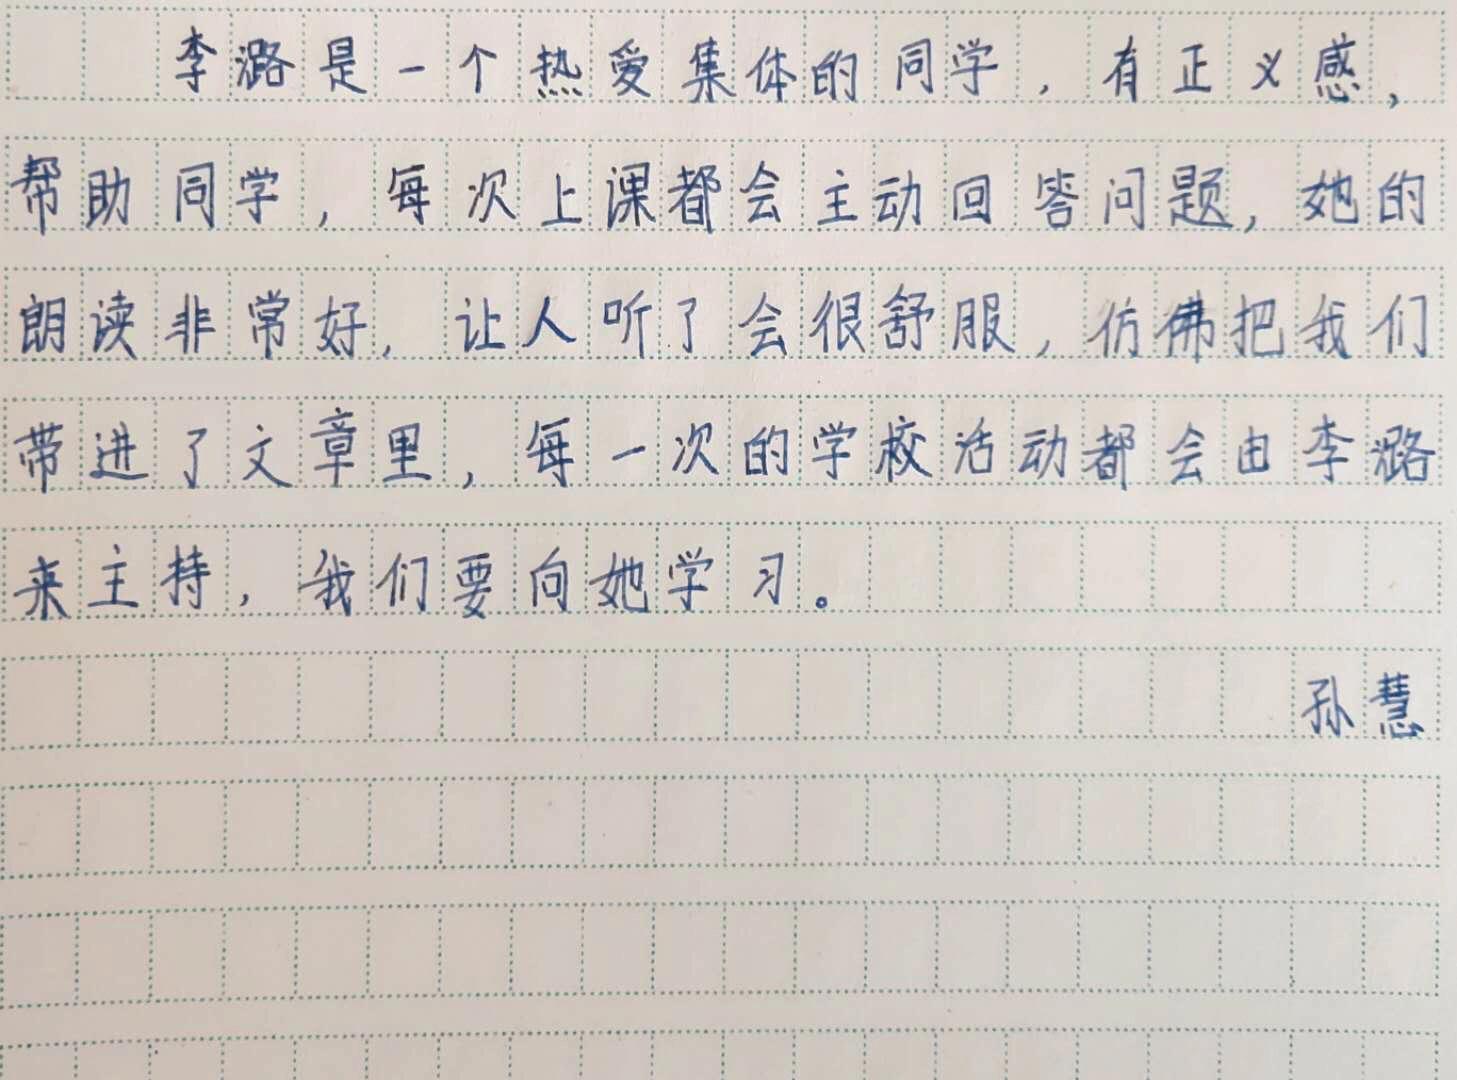 李潞是一个热爱集体的同学，有正义感，
帮助同学，每次上课都会主动回答问题，她的
朗读非常好，让人听了会很舒服，仿佛把我们
带进了文章里，每一次的学校活动都会由李潞
来主持，我们要向她学习。
孙慧